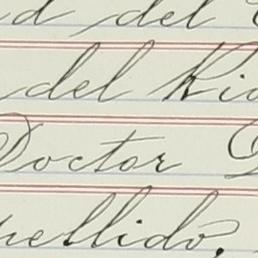 d del
del Rio
Doctor D
pellido,